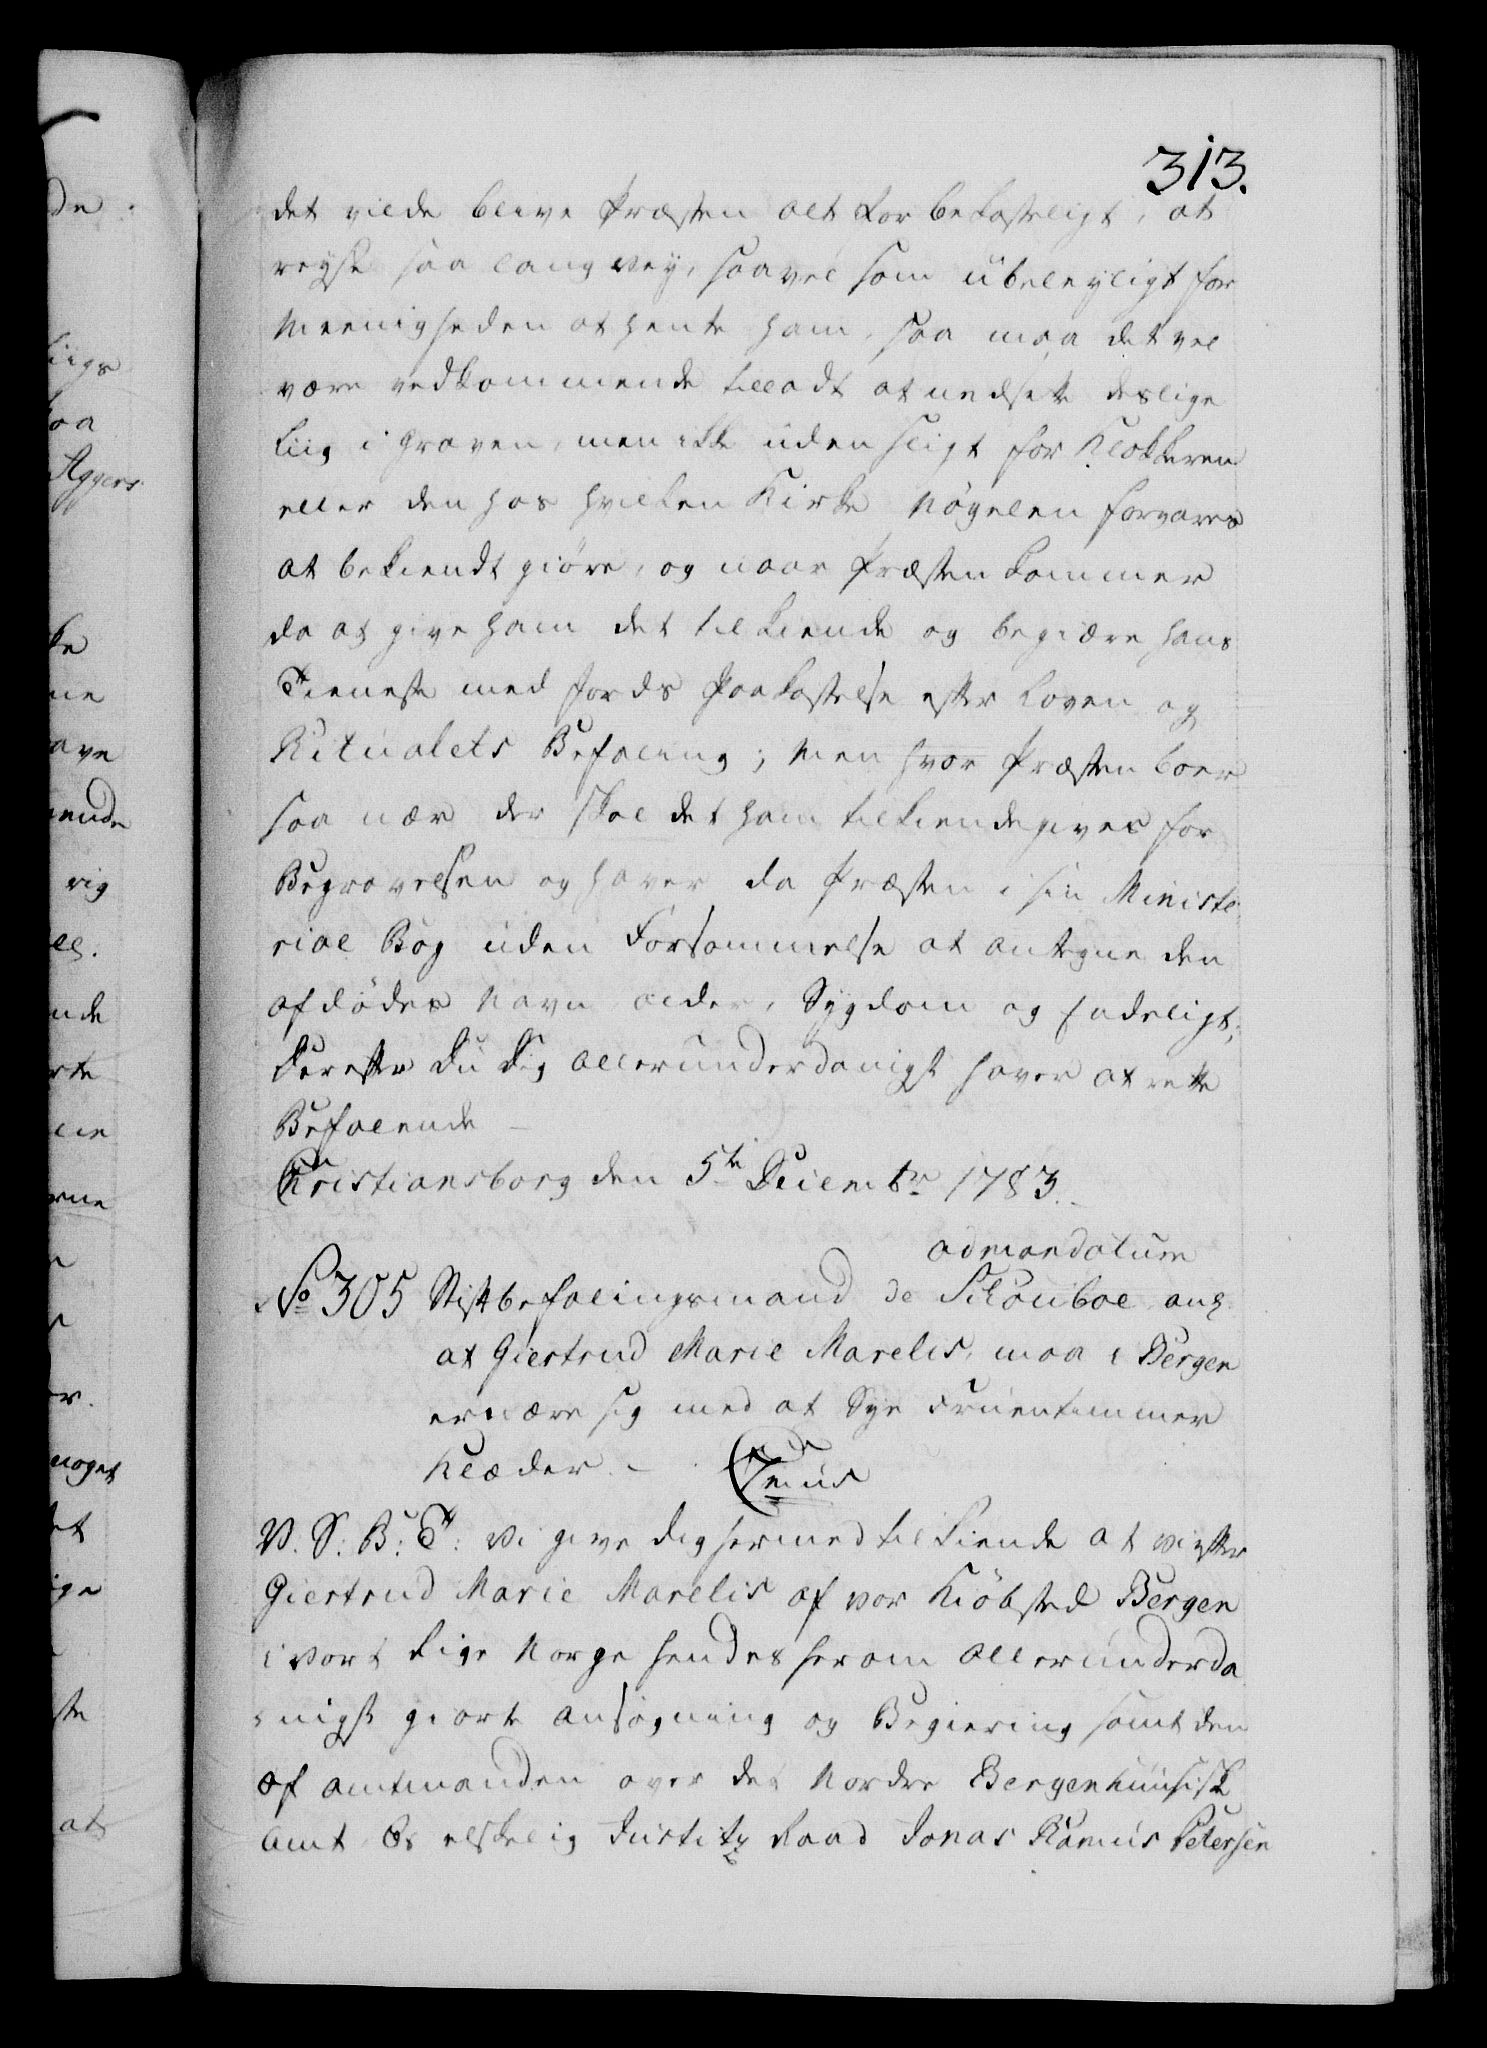 313.
det vilde blive Præsten alt for bekosteligt, at
reyse saa lang Vey, saavel som ubeleyligt for
Meenigheden at hente ham, saa maa det vel
være vedkommende tilladt at nedsætte deslige
Liig i Graven, men ikke uden sligt for Klokkeren
eller den hos hvilken Kirke Nøgelen forvares
at bekiendtgiøre, og naar Præsten kommer
da at give ham det tilkiende og begiære hans
Tieneste med Jords Paakastelse efter Loven og
Ritualets Befaling; Men hvor Præsten boer
saa nær der skal det ham tilkiendegives for
Begravelsen og haver da Præsten i sin Ministe
rial Bog uden Forsømmelse at antegne den
afdødes Navn, alder, Sygdom og endeligt;
Derefter Du Dig allerunderdanigst haver at rette
Befalende
Christiansborg den 5te Decembr 1783.
ad mandatum
No 305 Stiftbefalingsmand de Schouboe ang.
at Giertrud Marie Marelis, maa i Bergen
ernære sig med at Sye Fruentimmer
Klæder. –
V. S: B: T: Vi give dig hermed tilkiende at vi efter
Giertrud Marie Marelis af vor Kiøbsted Bergen
i Vort Rige Norge hendes herom allerunderda
nigst giorte ansøgning og Begiering samt den
af amtmanden over det Nordre Bergenhuusiske
amt Os elskelig Justitz Raad Jonas Ramus Petersen